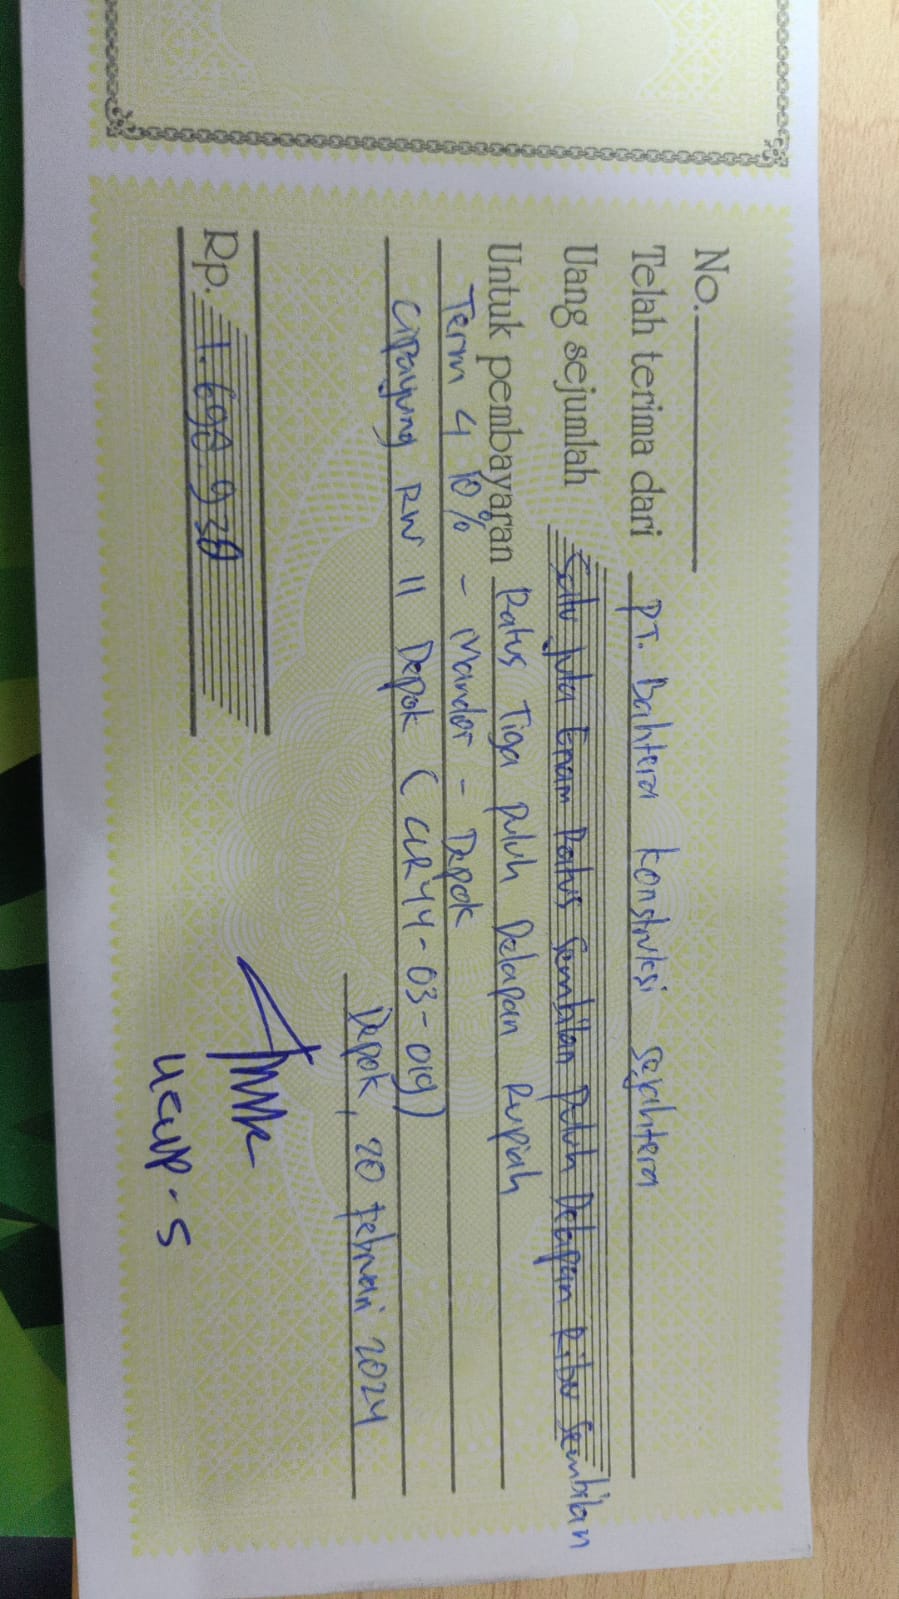 No.
Telah terima dari PT. Bahtera konstruksi sejahtera
Uang sejumlah Satu Juta Enam Ratus Sembilan Puluh Delapan Ribu Sembilan
Untuk pembayaran Ratus Tiga puluh Delapan Rupiah
Term 4 10% - Mandor - Depok
Cipayung RW 11 Depok (CLR44-03-019)
Depok, 20 Februari 2024
Rp. 1.698.938
Ucup-S